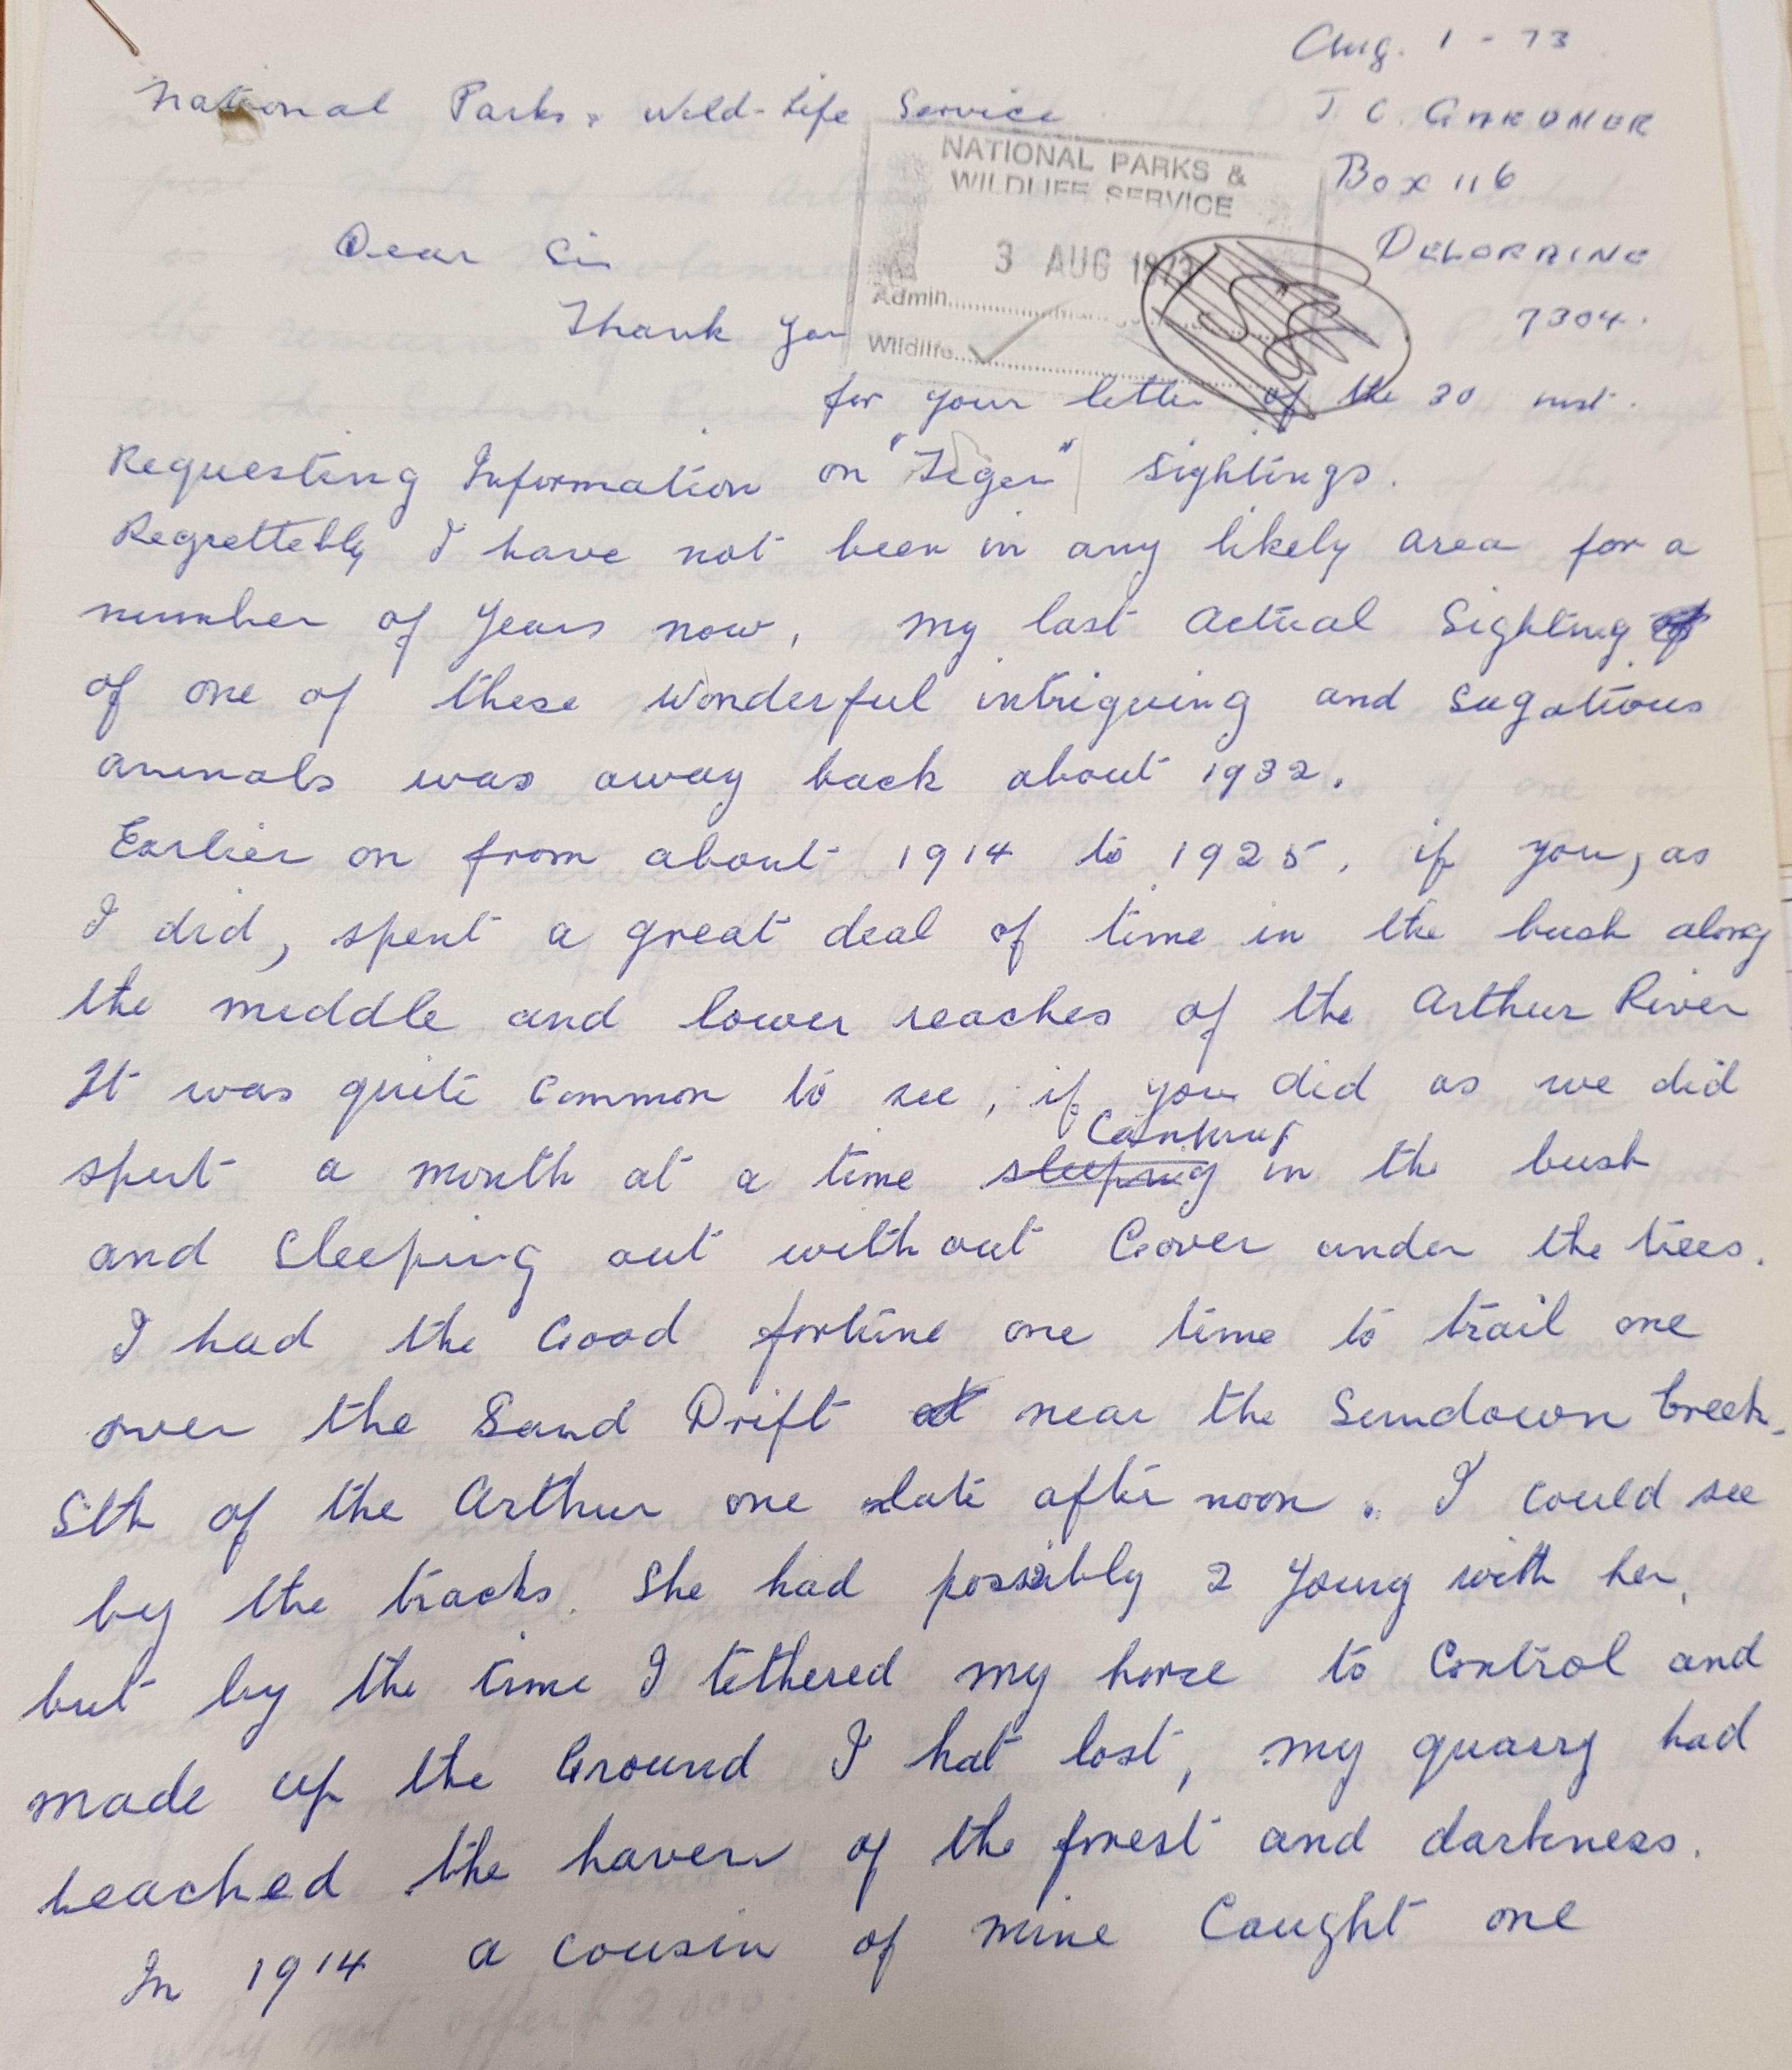 Aug. 1 - 73
National Parks & Wild-Life Service
J. C. GARDNER
NATIONAL PARKS &
WILDLIFE SERVICE
Box 116
3 AUG 1973
DELORAINE
7304.
Admin.
Wildlife
Dear Sir
Thank you
for your letter of the 30 inst.
Requesting Information on "Tiger" sightings.
Regrettebly I have not been in any likely area for a
number of Years now, my last actual Sighting
of one of these wonderful intriguing and sagatious
animals was away back about 1932.
Earlier on from about 1914 to 1925, if you, as
I did, spent a great deal of time in the bush along
the middle and lower reaches of the Arthur River
It was quite Common to see, if you did as we did
Camping
spent a month at a time sleeping in the bush
and Sleeping out with out Cover under the trees.
I had the Good fortune one time to trail one
over the Sand Drift at near the Sundown Creek
Sth of the Arthur one late after noon. I could see
by the tracks. She had possibly 2 Young with her,
but by the time I tethered my horse to Control and
made up the Ground I hat lost, my quarry had
reached the haven of the forest and darkness.
In 1914 a cousin of mine Caught one